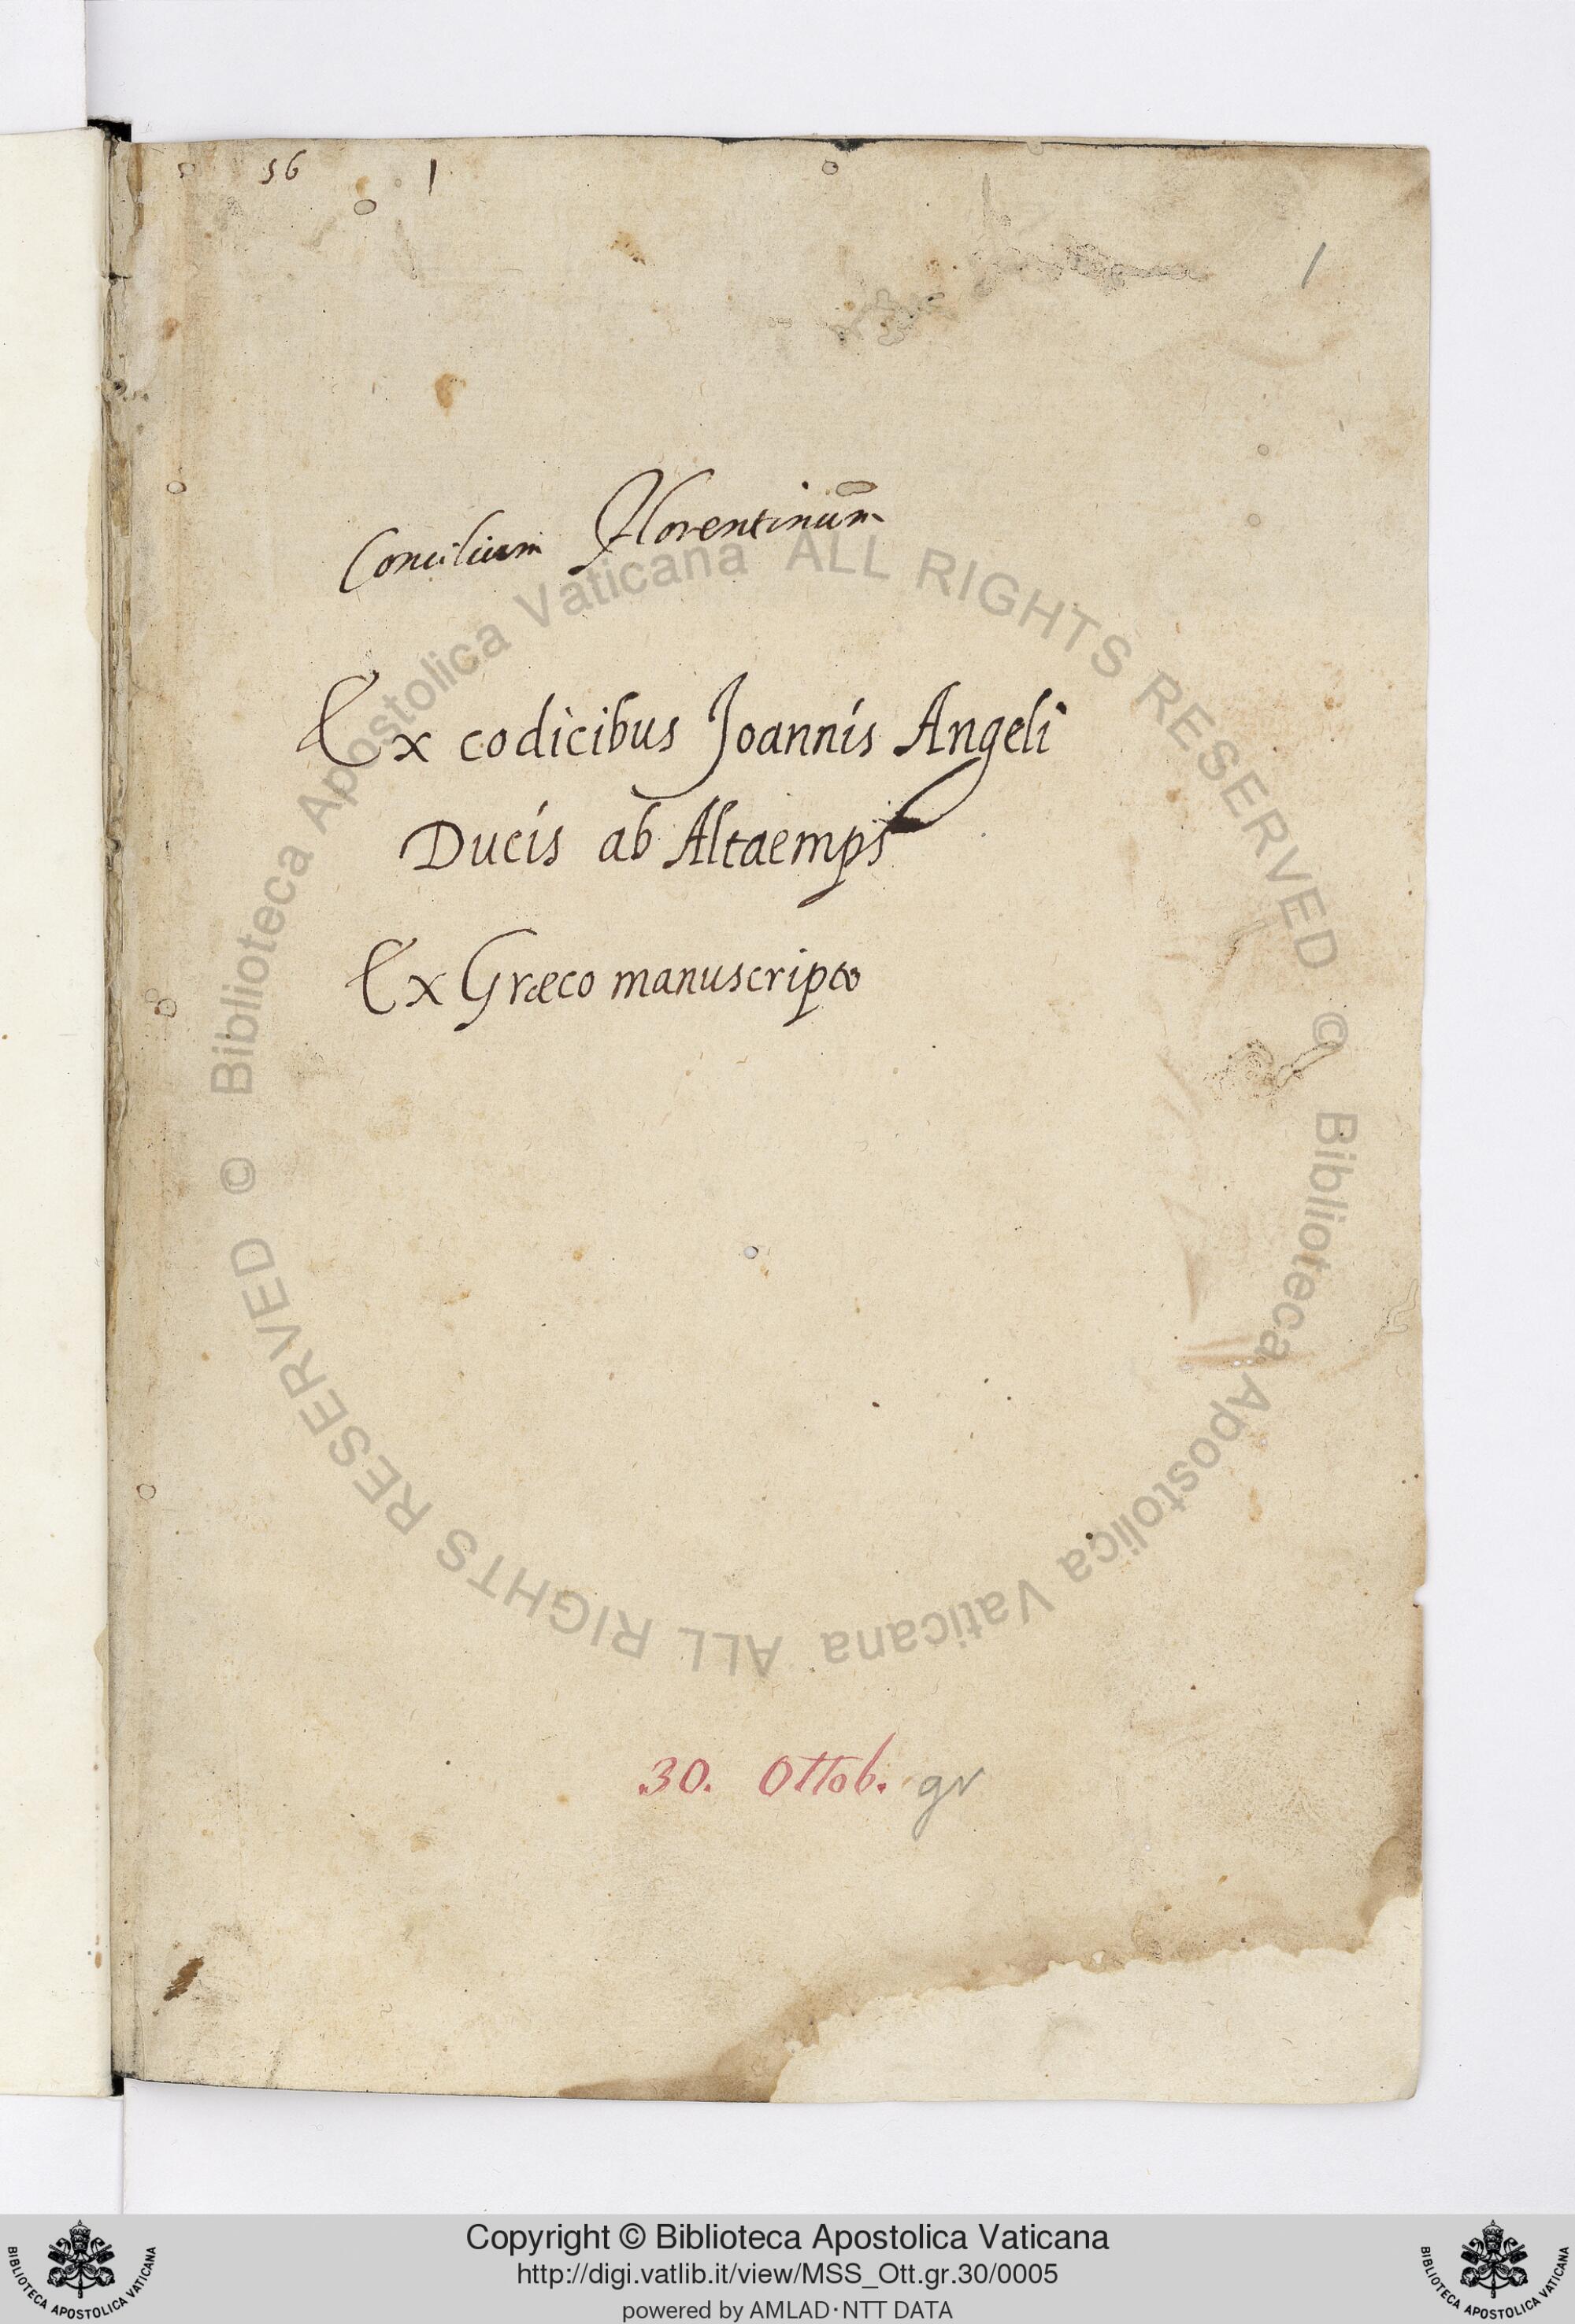 56 1
1
Concilium Florentinum
Ex codicibus Joannis Angeli
Ducis ab Altaemps
Ex Græco manuscripto
.30. Ottob. gr
© Biblioteca Apostolica Vaticana ALL RIGHTS RESERVED
© Biblioteca Apostolica Vaticana ALL RIGHTS RESERVED
Copyright © Biblioteca Apostolica Vaticana
http://digi.vatlib.it/view/MSS_Ott.gr.30/0005
powered by AMLAD·NTT DATA
BIBLIOTECA APOSTOLICA VATICANA
BIBLIOTECA APOSTOLICA VATICANA